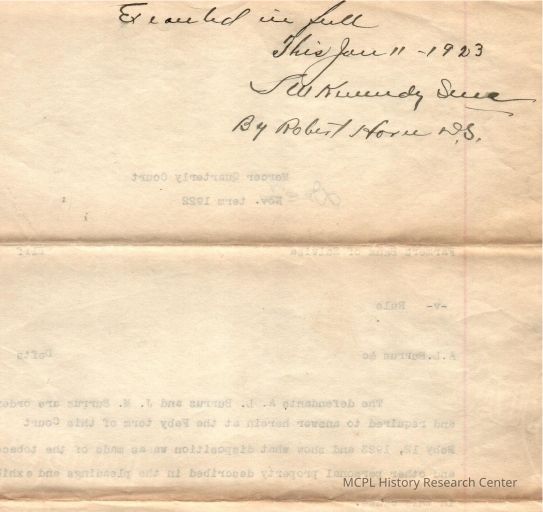 Executed in full
This Jan 11 - 1923
Kennedy
By Robert Horn D.S.
Mercer Quarterly Court
Nov. term 1922
Farmers Bank of Salvisa Plff
-v- Rule
A.L.Burrus &c Defts
The defendants A. L. Burrus and J. N. Burrus are order
and required to answer herein at the Feby term of this Court
Feby 12, 1923 and show what disposition was made of the tobacc
and other personal property described in the pleadings and exhib
MCPL History Research Center